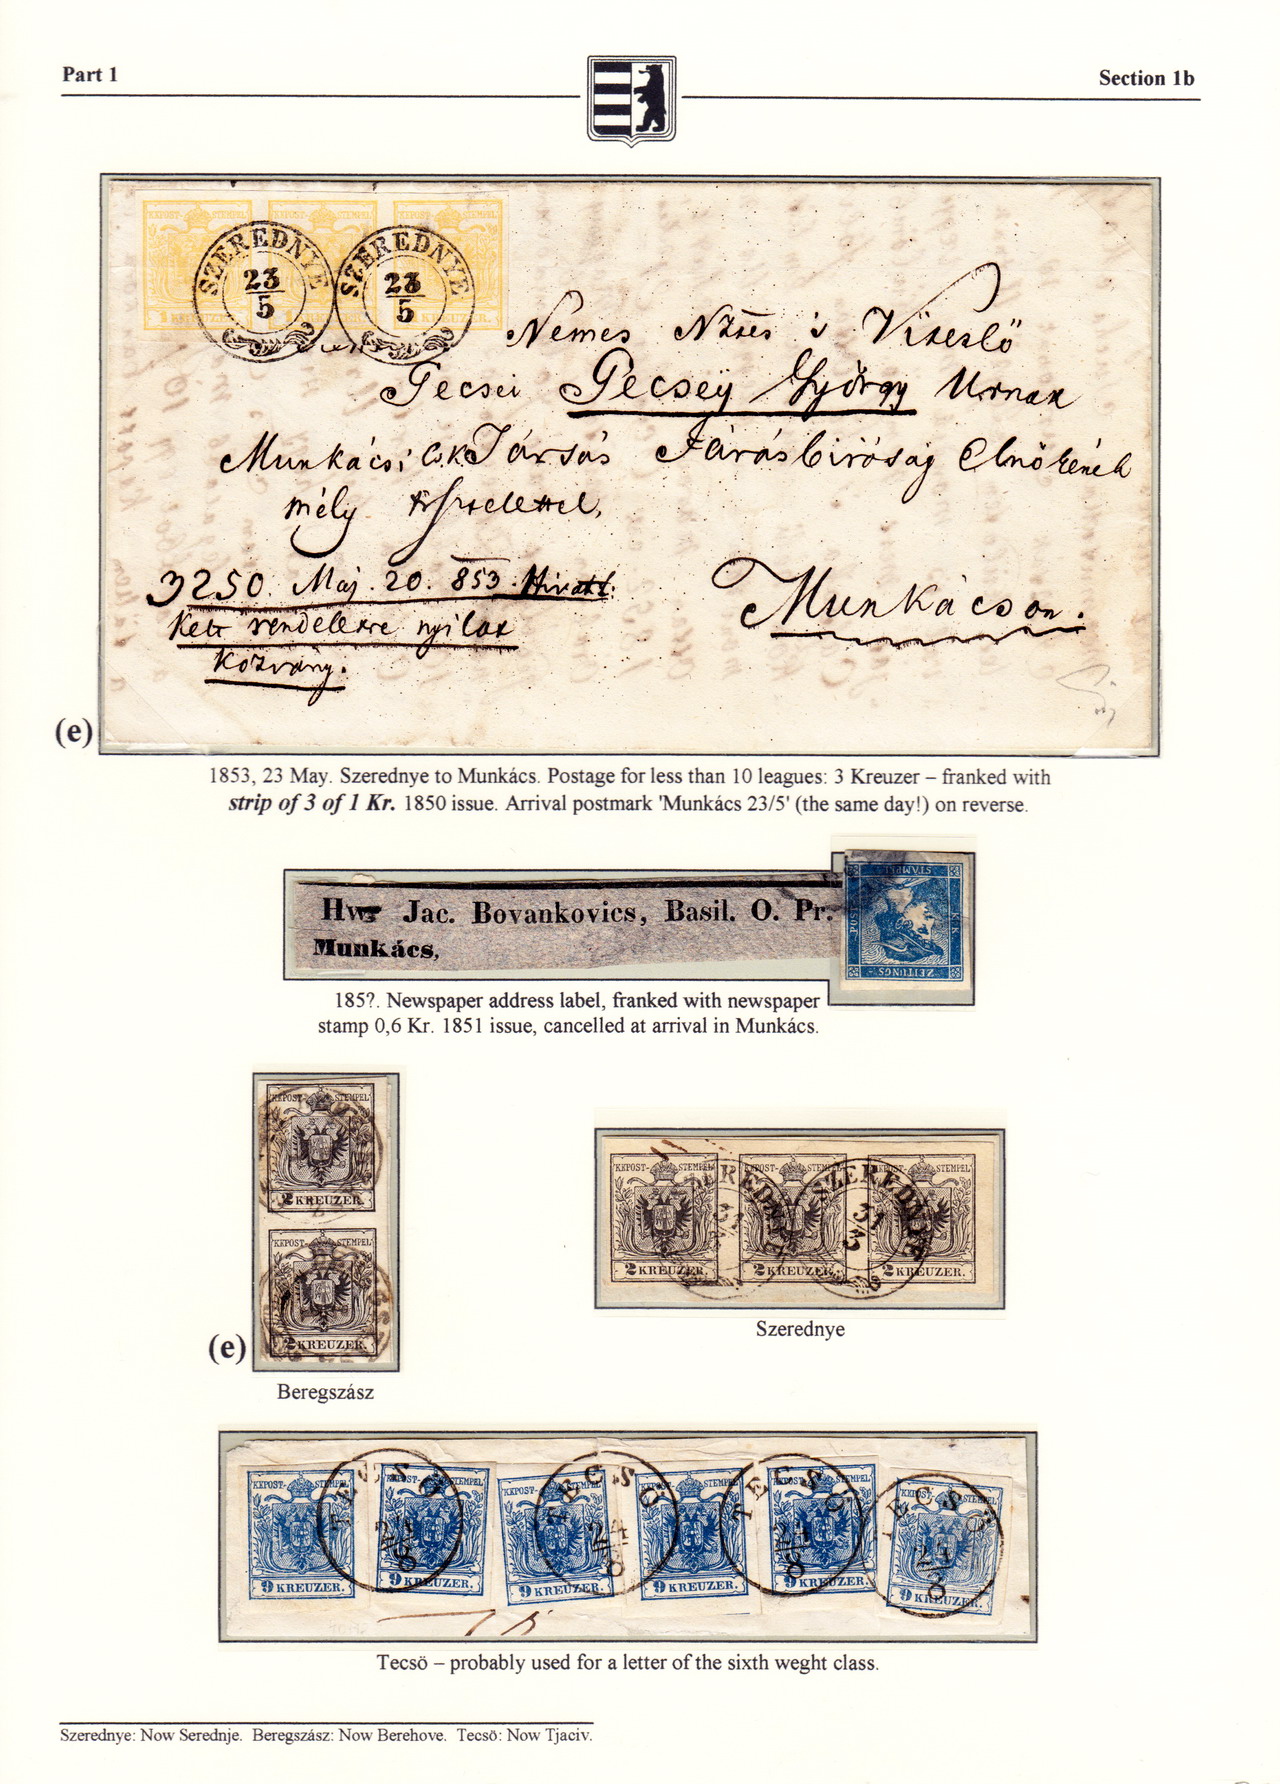 Part 1
Section 1b
KKPOST-STEMPEL KKPOST-STEMPEL KKPOST-STEMPEL
1 KREUZER. 1 KREUZER. 1 KREUZER.
SZEREDNYE SZEREDNYE
23 23
5 5
Nemes Vitézlő
Pecsei Pecsey György Urnak
Munkácsi Társas Járásbiróság Elnökének
mély tisztelettel,
3250. Maj. 20. 853. Hivatl.
Kelt rendeletre nyilat
kozvány.
Munkácson.
(e)
1853, 23 May. Szerednye to Munkács. Postage for less than 10 leagues: 3 Kreuzer – franked with
strip of 3 of 1 Kr. 1850 issue. Arrival postmark 'Munkács 23/5' (the same day!) on reverse.
Jac. Bovankovics, Basil. O. Pr.
Munkács,
ZEITUNGS
STAMPEL
POST
K.K.
185?. Newspaper address label, franked with newspaper
stamp 0,6 Kr. 1851 issue, cancelled at arrival in Munkács.
KKPOST-STEMPEL
2 KREUZER.
KKPOST-STEMPEL
2 KREUZER.
(e)
Beregszász
KKPOST-STEMPEL KKPOST-STEMPEL KKPOST-STEMPEL
SZEREDNYE SZEREDNYE
31 31
3
2 KREUZER. 2 KREUZER. 2 KREUZER.
Szerednye
KKPOST-STEMPEL KKPOST-STEMPEL KKPOST-STEMPEL KKPOST-STEMPEL KKPOST-STEMPEL KKPOST-STEMPEL
TECSÖ TECSÖ TECSÖ TECSÖ
24 24 24 24
8 8 8 8
9 KREUZER. 9 KREUZER. 9 KREUZER. 9 KREUZER. 9 KREUZER. 9 KREUZER.
Tecsö – probably used for a letter of the sixth weght class.
Szerednye: Now Serednje. Beregszász: Now Berehove. Tecsö: Now Tjaciv.